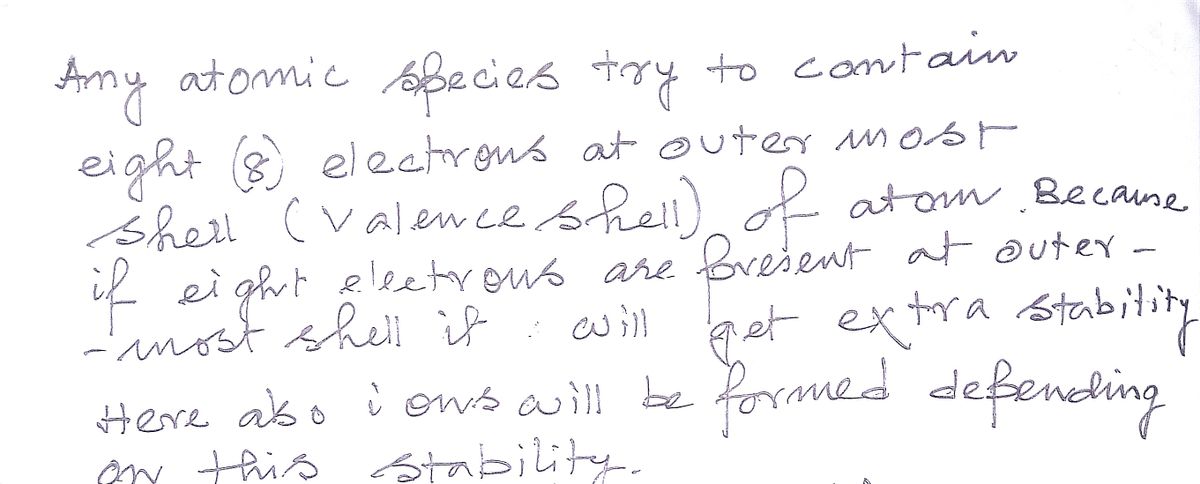 Any atomic species try to contain
eight (8) electrons at outer most
shell (valence shell) of atom. Because
if eight electrons are present at outer -
- most shell it will get extra stability
Here also ions will be formed depending
on this stability.